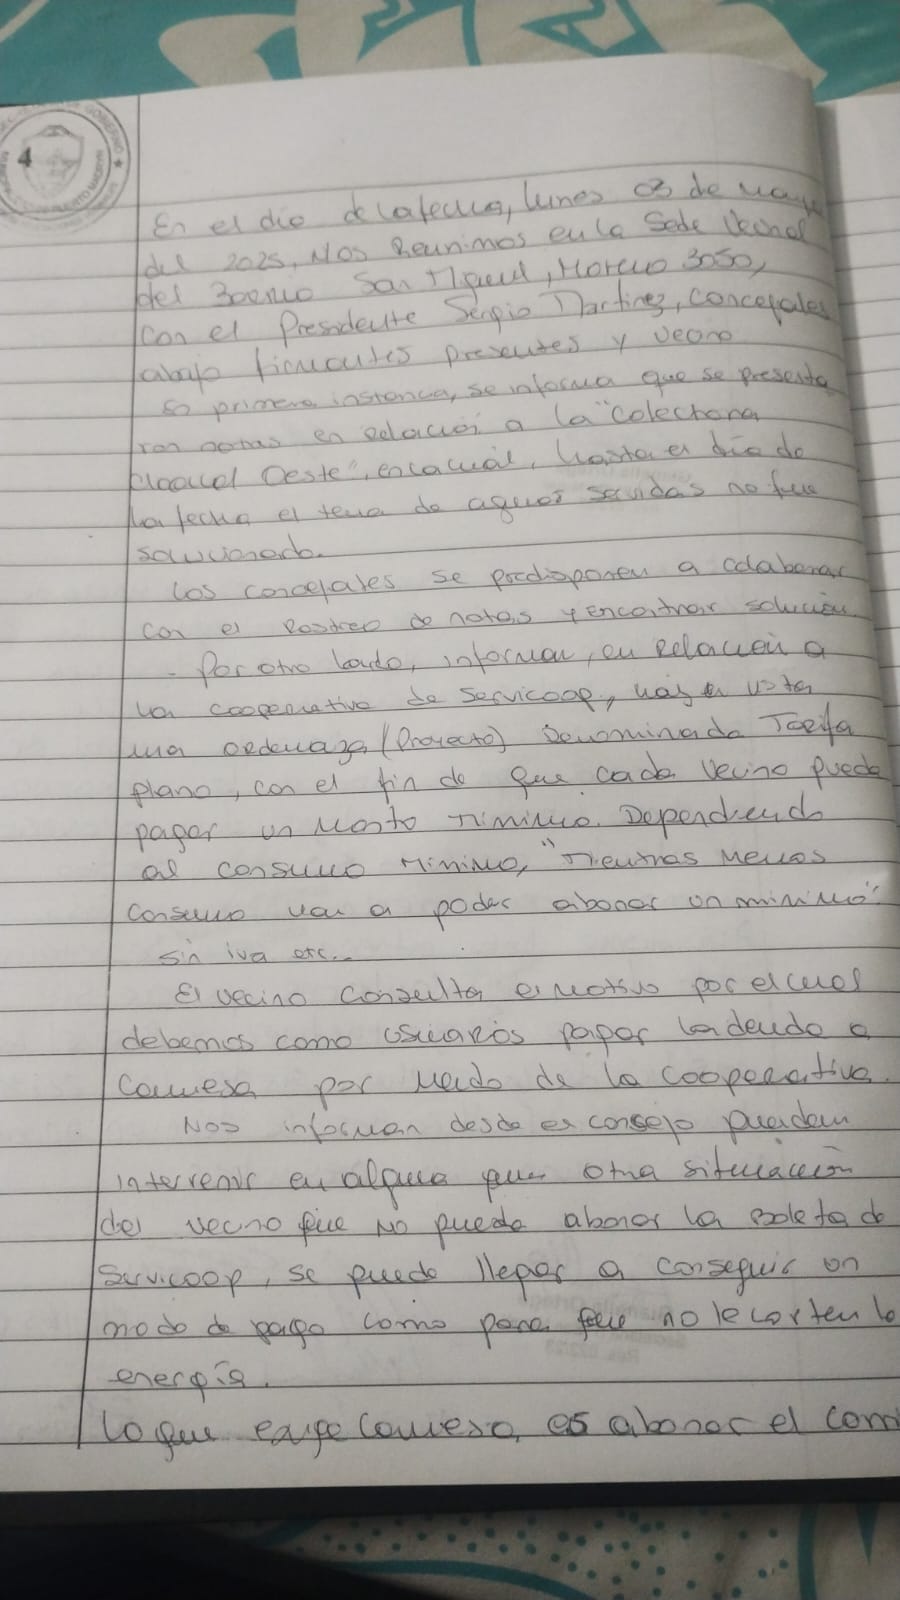 4
En el dia de la fecha, lunes 03 de
del 2025, Nos Reunimos en la Sede Vecinal
del Barrio San Miguel, Moreno 3050,
con el Presidente Sergio Martinez, concejales
abajo firmantes presentes y vecino
En primera instancia, se informa que se presenta
ron notas en relación a la "Colectora
Cloacal Oeste", en la cual, hasta el día de
la fecha el tema de aguas servidas no fue
solucionado.
Los concejales se predisponen a colaborar
con el Rastreo de notas y encontrar solución.
- Por otro lado, informan, en Relación a
la cooperativa de Servicoop, votar
una ordenaza (Proyecto) Denominada Tarifa
plana, con el fin de que cada Vecino pueda
pagar un Monto Minimo. Dependiendo
al consumo Minimo, "Mientras Menos
Consumo van a poder abonar un minimo"
sin iva etc..
El vecino Consulta el Motivo por el cual
debemos como Usuarios pagar la deuda a
Camesa por Medio de la cooperativa.
Nos informan desde el consejo pueden
intervenir en alguna que otra situación
del vecino que No pueda abonar la Boleta de
Servicoop, se puede llegar a conseguir un
modo de pago como para que no le corten la
energía.
Lo que exige Camesa, es abonar el